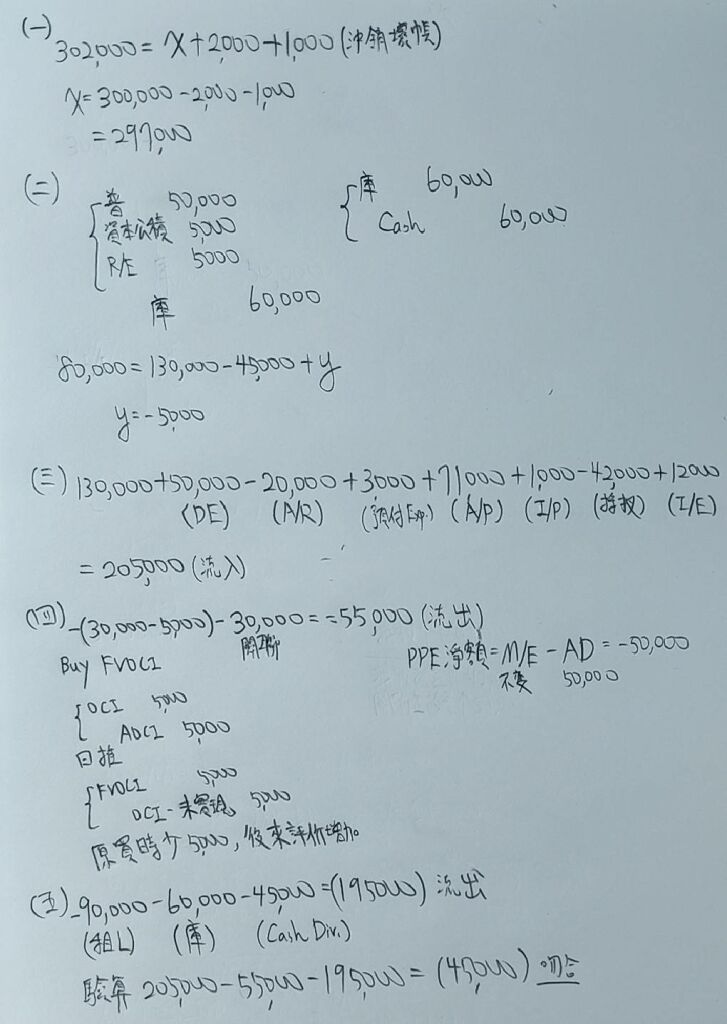 (一)
302,000 = X + 2,000 + 1,000 (沖銷壞帳)
X = 300,000 - 2,000 - 1,000
= 297,000
(二)
普 50,000
資本公積 5,000
R/E 5000
庫 60,000
庫 60,000
Cash 60,000
80,000 = 130,000 - 45,000 + y
y = -5000
(三) 130,000 + 50,000 - 20,000 + 3000 + 71000 + 1,000 - 42,000 + 12000
(DE) (A/R) (預付Exp.) (A/P) (I/P) (採权) (I/E)
= 205,000 (流入)
(四) -(30,000 - 5,000) - 30,000 = -55,000 (流出)
關聯
Buy FVOCI
PPE淨額 = M/E - AD = -50,000
不变 50,000
OCI 5,000
AOCI 5,000
回推
FVOCI 5,000
OCI-未實現 5,000
原買時少5,000, 後來評价增加
(五) -90,000 - 60,000 - 45,000 = (195,000) 流出
(租L) (庫) (Cash Div.)
驗算 205,000 - 55,000 - 195,000 = (45,000) 吻合